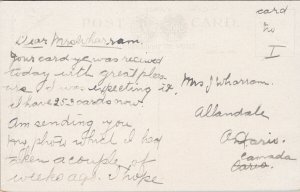 card
no
I
POST CARD
Dear Mrs Wharram.
Your card yo was recived
today with great pleas
ure I was expecting it,
I have 253 cards now.
Am sending you
my photo which I had
taken a couple of
weeks ago. I hope
Mrs J Wharram.
Allandale
Ontario.
Canada